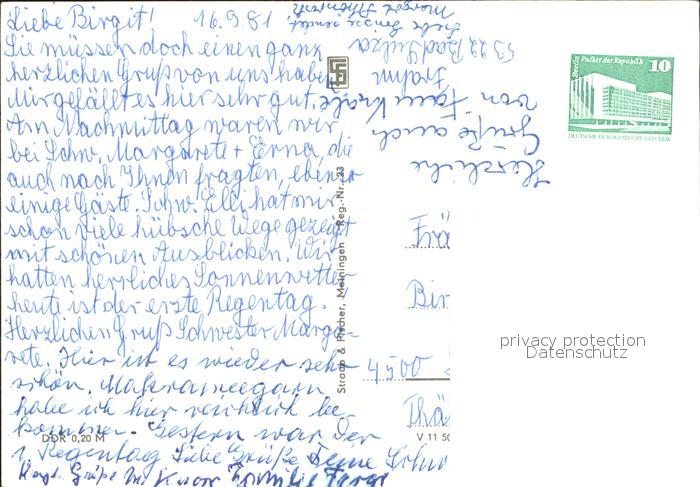 Liebe Birgit! 16.9.81
Sie müssen doch einen ganz
herzlichen Gruß von uns haben
Mir gefällt es hier sehr gut.
Am Nachmittag waren wir
bei Schw. Margarete + Erna, die
auch nach Ihnen fragten, ebenso
einige Gäste. Schw. Elli hat mir
schon viele hübsche Wege gezeigt
mit schönen Ausblicken. Wir
hatten herrliches Sonnenwetter
heute ist der erste Regentag.
Herzlichen Gruß Schwester Marga-
rete. Hier ist es wieder sehr
schön. Makrameegarn
habe ich hier reichlich be-
kommen. Gestern war der
1. Regentag Liebe Grüße Deine
Herzl. Grüße Familie
Herzliche
Grüße auch
von Frau
5322 Bad Sulza
Liebe Grüße sendet
Margot
Straub & Fischer, Meiningen Reg.-Nr. 23
DDR 0,20 M
V 11 50
Berlin Palast der Republik 10
DEUTSCHE DEMOKRATISCHE REPUBLIK
Frä
Bir
4500
Thä
privacy protection
Datenschutz